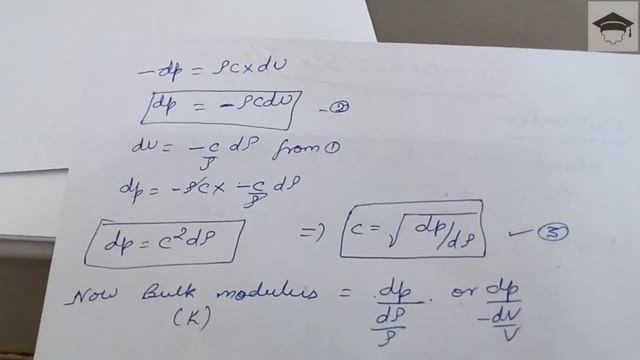 -dp = ρc x dv
dp = - ρcdv -②
dv = -c/ρ dρ from ①
dp = -ρc x -c/ρ dρ
dp = c²dρ => c = √dp/dρ -③
Now Bulk modulus = dp/(dρ/ρ) . or dp/(-dV/V)
(K)